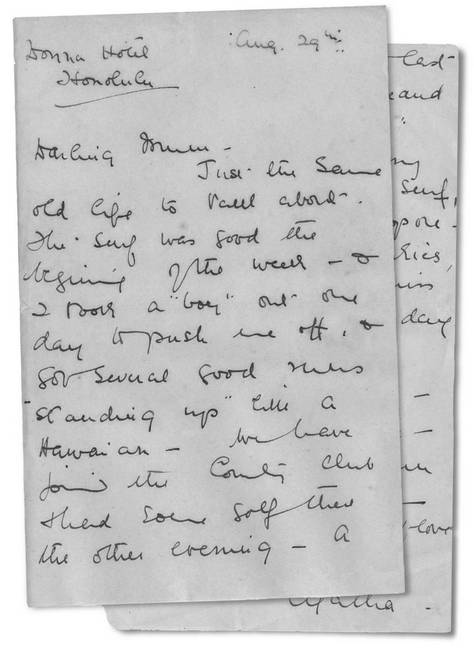 Donna Hotel
Honolulu
Aug. 29th
Darling Mum –
Just the same
old life to tell about.
The surf was good the
begining of the week – &
I took a "boy" out one
day to push me off, &
got several good runs
"standing up" like a
Hawaiian – We have
joined the Country Club
& had some golf there
the other evening – A
last
and
Surf,
day
love
Agatha.